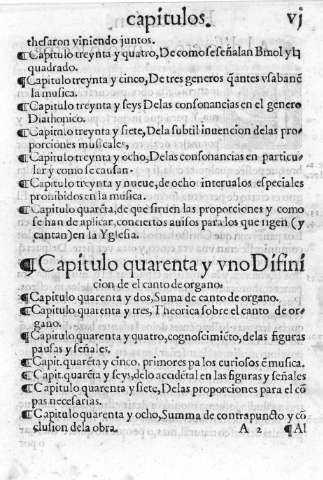 capitulos. vj
thesaron viniendo juntos.
¶Capitulo treynta y quatro, De como se señalan Bmol y ♮
quadrado.
¶Capitulo treynta y cinco, De tres generos q̃antes vsabanẽ
la musica.
¶Capitulo treynta y seys Delas consonancias en el genero
Diathonico.
¶Capitulo treynta y siete, Dela subtil inuencion delas pro-
porciones musicales,
¶Capitulo treynta y ocho, Delas consonancias en particu-
lar y como se causan.
¶Capitulo treynta y nueue, de ocho interualos especiales
prohibidos en la musica.
¶Capitulo quarẽta, de que siruen las proporciones y como
se han de aplicar, conciertos auisos para los que rigen (y
cantan) en la Yglesia.
¶Capitulo quarenta y vno Difini
cion de el canto de organo.
¶Capitulo quarenta y dos, Suma de canto de organo.
¶Capitulo quarenta y tres, Theorica sobre el canto de or-
gano.
¶Capitulo quarenta y quatro, cognoscimiẽto, delas figuras
pausas y señales.
¶Capit. quarẽta y cinco. primores pa los curiosos ẽ musica.
¶Capit. quarẽta y seys, delo accidẽtal en las figuras y señales
¶Capitulo quarenta y siete, Delas proporciones para el cõ
pas necesarias.
¶Capitulo quarenta y ocho, Summa de contrapuncto y cõ
clusion dela obra. A 2 ¶Al